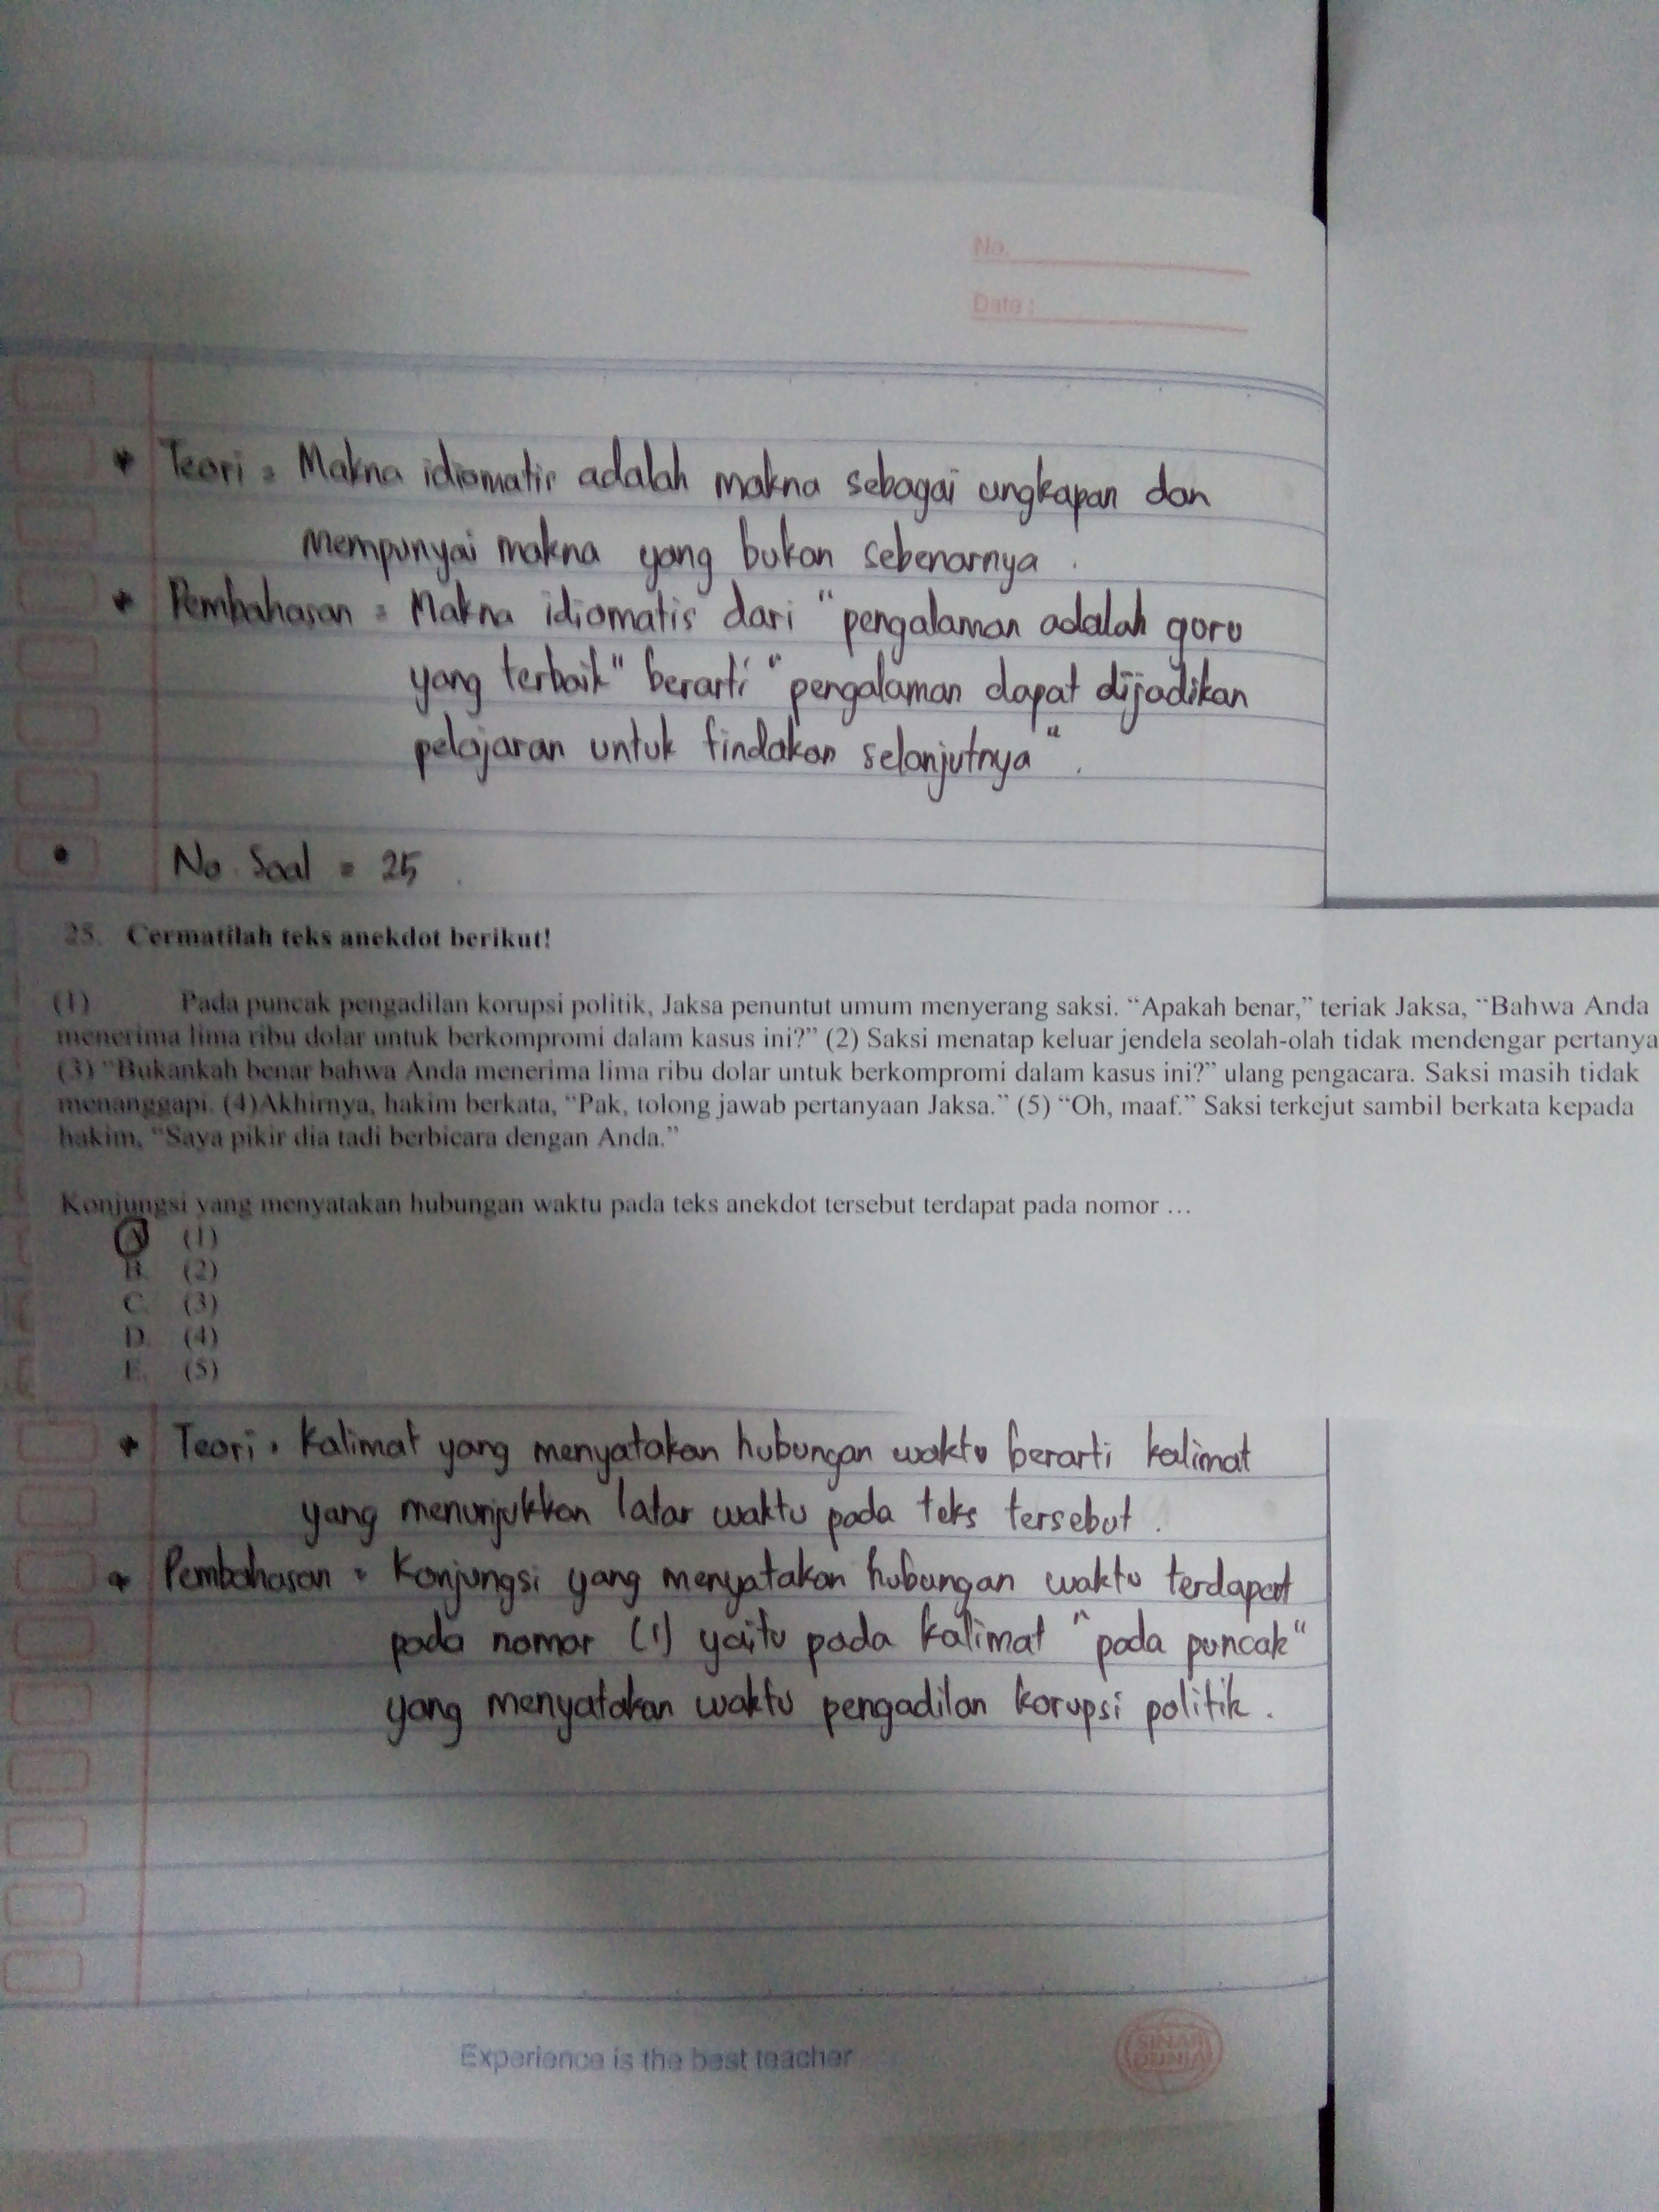 No.
Date :
* Teori = Makna idiomatis adalah makna sebagai ungkapan dan
mempunyai makna yang bukan sebenarnya.
* Pembahasan = Makna idiomatis dari "pengalaman adalah guru
yang terbaik" berarti "pengalaman dapat dijadikan
pelajaran untuk tindakan selanjutnya".
• No Soal = 25.
25. Cermatilah teks anekdot berikut!
(1) Pada puncak pengadilan korupsi politik, Jaksa penuntut umum menyerang saksi. “Apakah benar,” teriak Jaksa, “Bahwa Anda
menerima lima ribu dolar untuk berkompromi dalam kasus ini?” (2) Saksi menatap keluar jendela seolah-olah tidak mendengar pertanya
(3) “Bukankah benar bahwa Anda menerima lima ribu dolar untuk berkompromi dalam kasus ini?” ulang pengacara. Saksi masih tidak
menanggapi. (4)Akhirnya, hakim berkata, “Pak, tolong jawab pertanyaan Jaksa.” (5) “Oh, maaf.” Saksi terkejut sambil berkata kepada
hakim, “Saya pikir dia tadi berbicara dengan Anda.”
Konjungsi yang menyatakan hubungan waktu pada teks anekdot tersebut terdapat pada nomor …
A. (1)
B. (2)
C. (3)
D. (4)
E. (5)
* Teori = Kalimat yang menyatakan hubungan waktu berarti kalimat
yang menunjukkan latar waktu pada teks tersebut.
* Pembahasan = Konjungsi yang menyatakan hubungan waktu terdapat
pada nomor (1) yaitu pada kalimat "pada puncak"
yang menyatakan waktu pengadilan korupsi politik.
Experience is the best teacher
SINAR
DUNIA